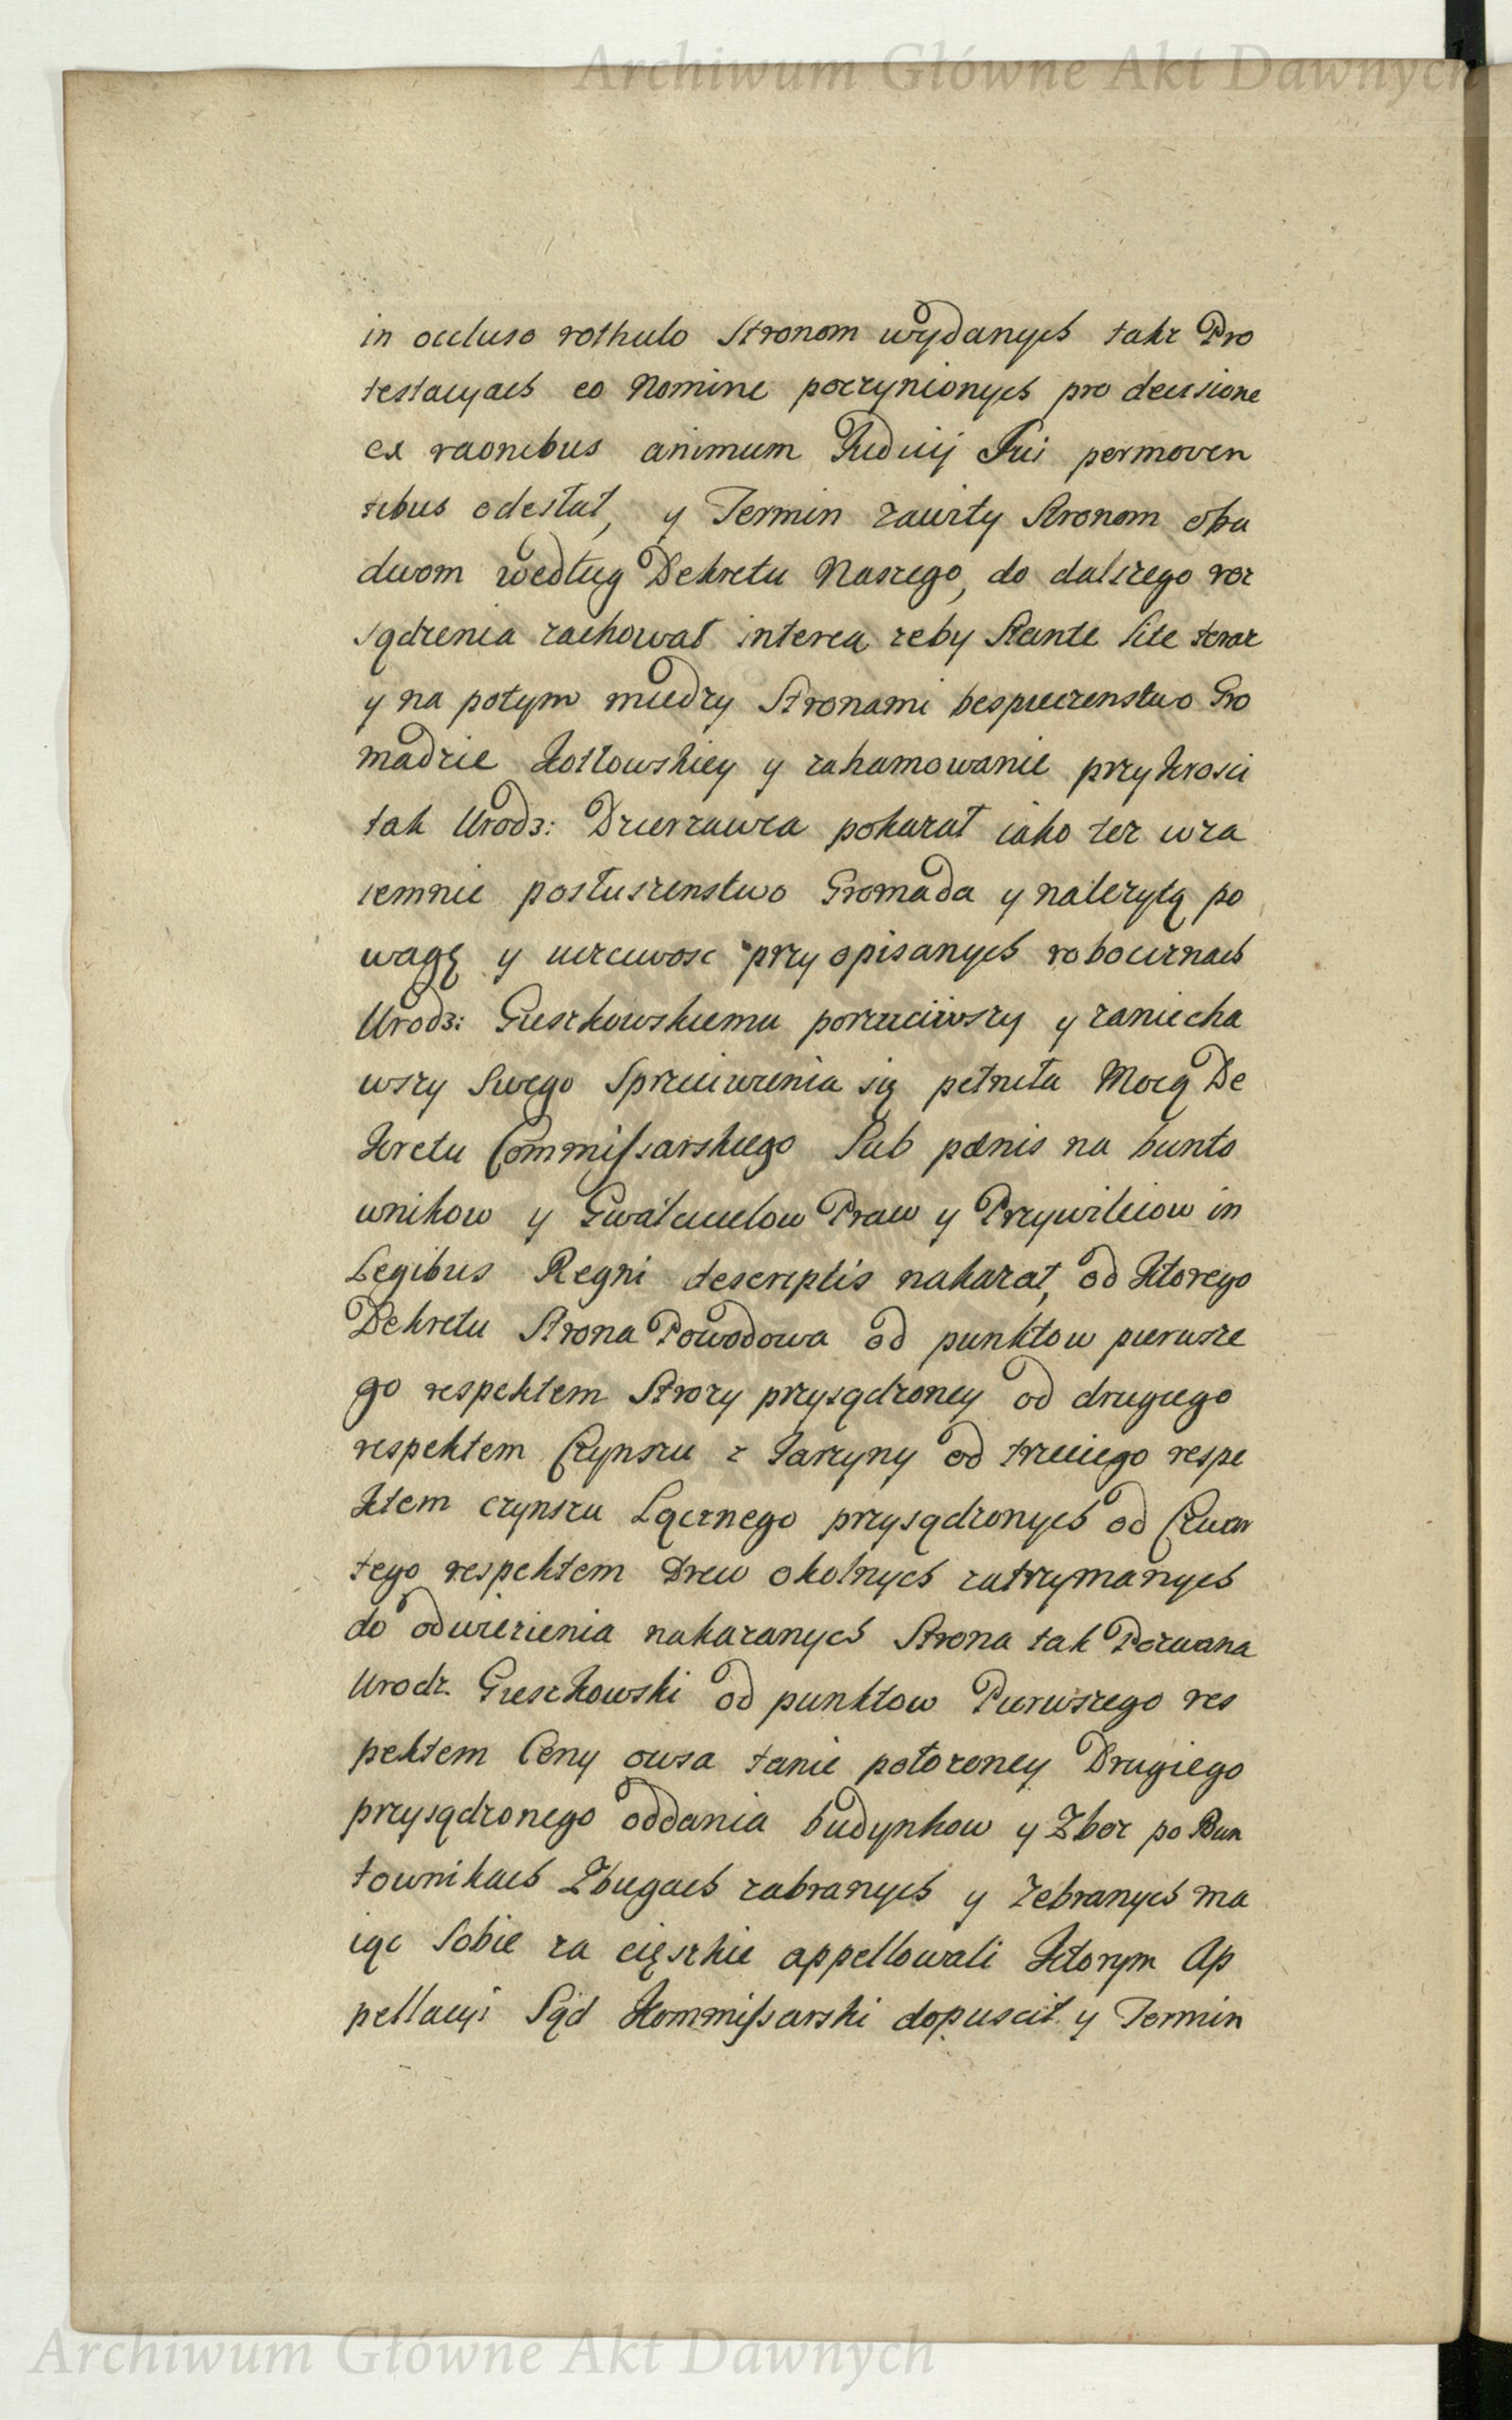 Archiwum Główne Akt Dawnych
in occluso rothulo Stronom wydanych takz Pro
testacyach eo Nomine poczynionych pro decisione
ex raonibus animum Judicij Sui permoven
tibus odesłał, y Termin zawity Stronom obu
dwom według Dekretu Naszego, do dalszego roz
sądzenia zachował interea zeby Stante lite teraz
y na potym miedzy Stronami bespieczenstwo Gro
madzie Kozłowskiey y zahamowanie przykrosci
tak Urodz: Dzierzawca pokazał iako tez wza
iemnie posłuszenstwo Gromada y nalezytą po
wagę y uczciwosc przy opisanych robociznach
Urodz: Gieszkowskiemu porzuciwszy y zaniecha
wszy Swego Sprzeciwienia się pełniła Mocą De
kretu Commissarskiego Sub pœnis na bunto
wnikow y Gwałcicielow Praw y Przywileiow in
Legibus Regni descriptis nakazał, od ktorego
Dekretu Strona Powodowa od punktow pierwsze
go respektem Strozy przysądzoney od drugiego
respektem Czynszu z Jarzyny od trzeciego respe
ktem czynszu Łącznego przysądzonych od Czwar
tego respektem Drew okolnych zatrzymanych
do odwiezienia nakazanych Strona tak Pozwana
Urodz. Gieszkowski od punktow Pierwszego res
pektem Ceny owsa tanie położoney Drugiego
przysądzonego oddania budynkow y Zboz po Bun
townikach Zbiegach zabranych y Zebranych ma
iąc Sobie za cięszkie appellowali ktorym Ap
pellacyi Sąd Kommissarski dopuscił y Termin
Archiwum Główne Akt Dawnych